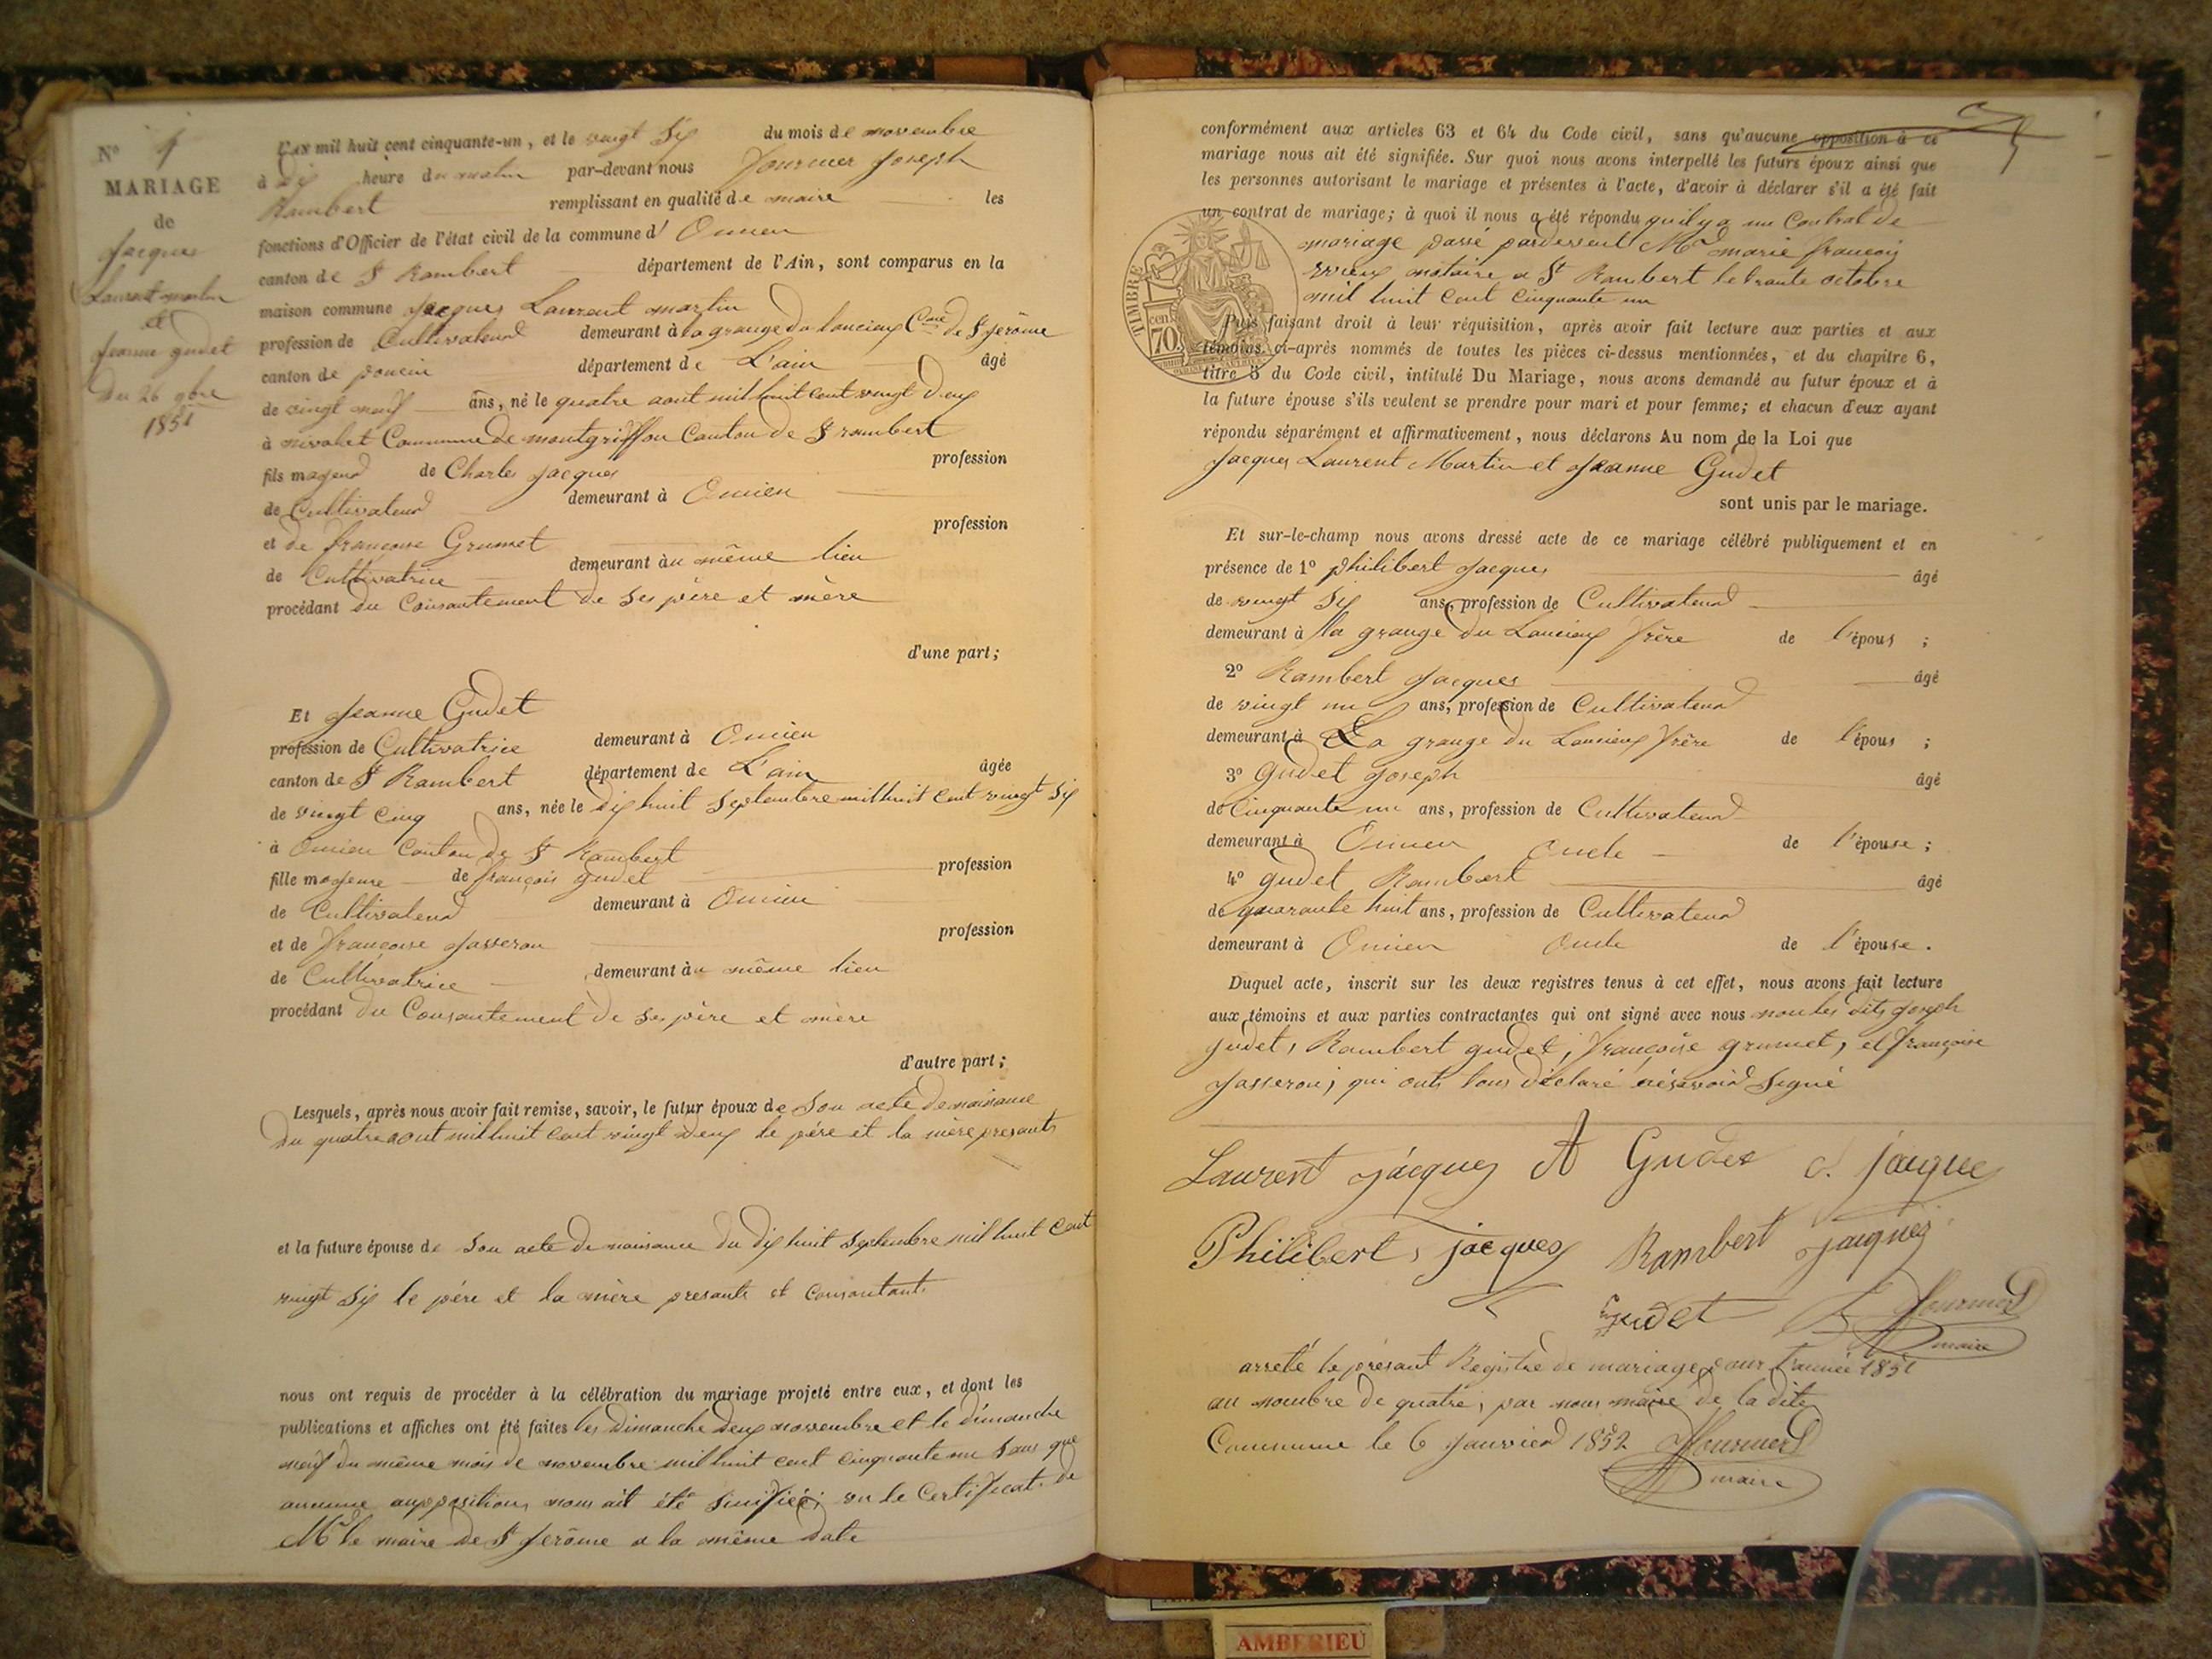 N° 4
MARIAGE
de
Jacques
Laurent martin
et
Jeanne gudet
Du 26 9bre
1851
L'AN mil huit cent cinquante-un, et le vingt Six du mois de novembre
à dix heure du matin par-devant nous fournier Joseph
Rambert remplissant en qualité de maire les
fonctions d'Officier de l'état civil de la commune d' Oncieu
canton de St Rambert département de l'Ain, sont comparus en la
maison commune Jacques Laurent martin
profession de Cultivateur demeurant à la grange du lancieux Cne de St Jerôme
canton de poncin département de L'ain âgé
de vingt neuf ans, né le quatre aout mil huit cent vingt deux
à nivolet Commune de montgriffon Canton de St rambert
fils majeur de Charles Jacques profession
de Cultivateur demeurant à Oncieu
et de françoise Grumet profession
de Cultivatrice demeurant àu même lieu
procédant du Consantement de ses père et mère
d'une part;
Et Jeanne Gudet
profession de Cultivatrice demeurant à Oncieu
canton de St Rambert département de L'ain âgée
de vingt cinq ans, née le dix huit Septembre mil huit cent vingt Six
à Oncieu Canton de St Rambert
fille majeure de françois gudet profession
de Cultivateur demeurant à Oncieu
et de françoise Jasseron profession
de Cultivatrice demeurant àu même lieu
procédant du Consantement de ses père et mère
d'autre part;
Lesquels, après nous avoir fait remise, savoir, le futur époux de Son acte de naisance
du quatre aout mil huit cent vingt deux le père et la mère presants
et la future épouse de Son acte de naisance du dix huit Septembre mil huit cent
vingt Six le père et la mère presants et Consantants
nous ont requis de procéder à la célébration du mariage projeté entre eux, et dont les
publications et affiches ont été faites les dimanche deux novembre et le dimanche
neuf du même mois de novembre mil huit cent cinquante un Sans que
aucune aupposition nous ait été Sinifiée; vu le Certificat de
Mr le maire de St Jerôme a la même date
conformément aux articles 63 et 64 du Code civil, sans qu'aucune opposition à ce
mariage nous ait été signifiée. Sur quoi nous avons interpellé les futurs époux ainsi que
les personnes autorisant le mariage et présentes à l'acte, d'avoir à déclarer s'il a été fait
un contrat de mariage; à quoi il nous a été répondu qu'il y a un Contrat de
mariage passé pardevent Me marie françois
notaire a St Rambert le trante octobre
mil huit cent cinquante un
TIMBRE
cen.
70.
Puis faisant droit à leur réquisition, après avoir fait lecture aux parties et aux
témoins ci-après nommés de toutes les pièces ci-dessus mentionnées, et du chapitre 6,
titre 5 du Code civil, intitulé Du Mariage, nous avons demandé au futur époux et à
la future épouse s'ils veulent se prendre pour mari et pour femme; et chacun d'eux ayant
répondu séparément et affirmativement, nous déclarons Au nom de la Loi que
Jacques Laurent Martin et Jeanne Gudet
sont unis par le mariage.
Et sur-le-champ nous avons dressé acte de ce mariage célébré publiquement et en
présence de 1° philibert Jacques âgé
de vingt Six ans, profession de Cultivateur
demeurant à la grange du Lancieux frère de l'épous ;
2° Rambert Jacques âgé
de vingt un ans, profession de Cultivateur
demeurant à La grange du Lancieux frère de l'épous ;
3° gudet Joseph âgé
de Cinquante un ans, profession de Cultivateur
demeurant à Oncieu oncle de l'épouse ;
4° gudet Rambert âgé
de quarante huit ans, profession de Cultivateur
demeurant à Oncieu oncle de l'épouse .
Duquel acte, inscrit sur les deux registres tenus à cet effet, nous avons fait lecture
aux témoins et aux parties contractantes qui ont signé avec nous non les dits Joseph
gudet, Rambert gudet, françoise grumet, et françoise
Jasseron, qui onts tous déclaré nésavoir Signé
Laurent Jacques A Gudet C. jacque
Philibert, jacques Rambert Jacques
gudet Fournier
maire
arreté le présant Registre de mariage pour l'année 1851
au nombre de quatre, par nous maire de la dite
Commune le 6 Janvier 1852 Fournier
maire
AMBERIEU